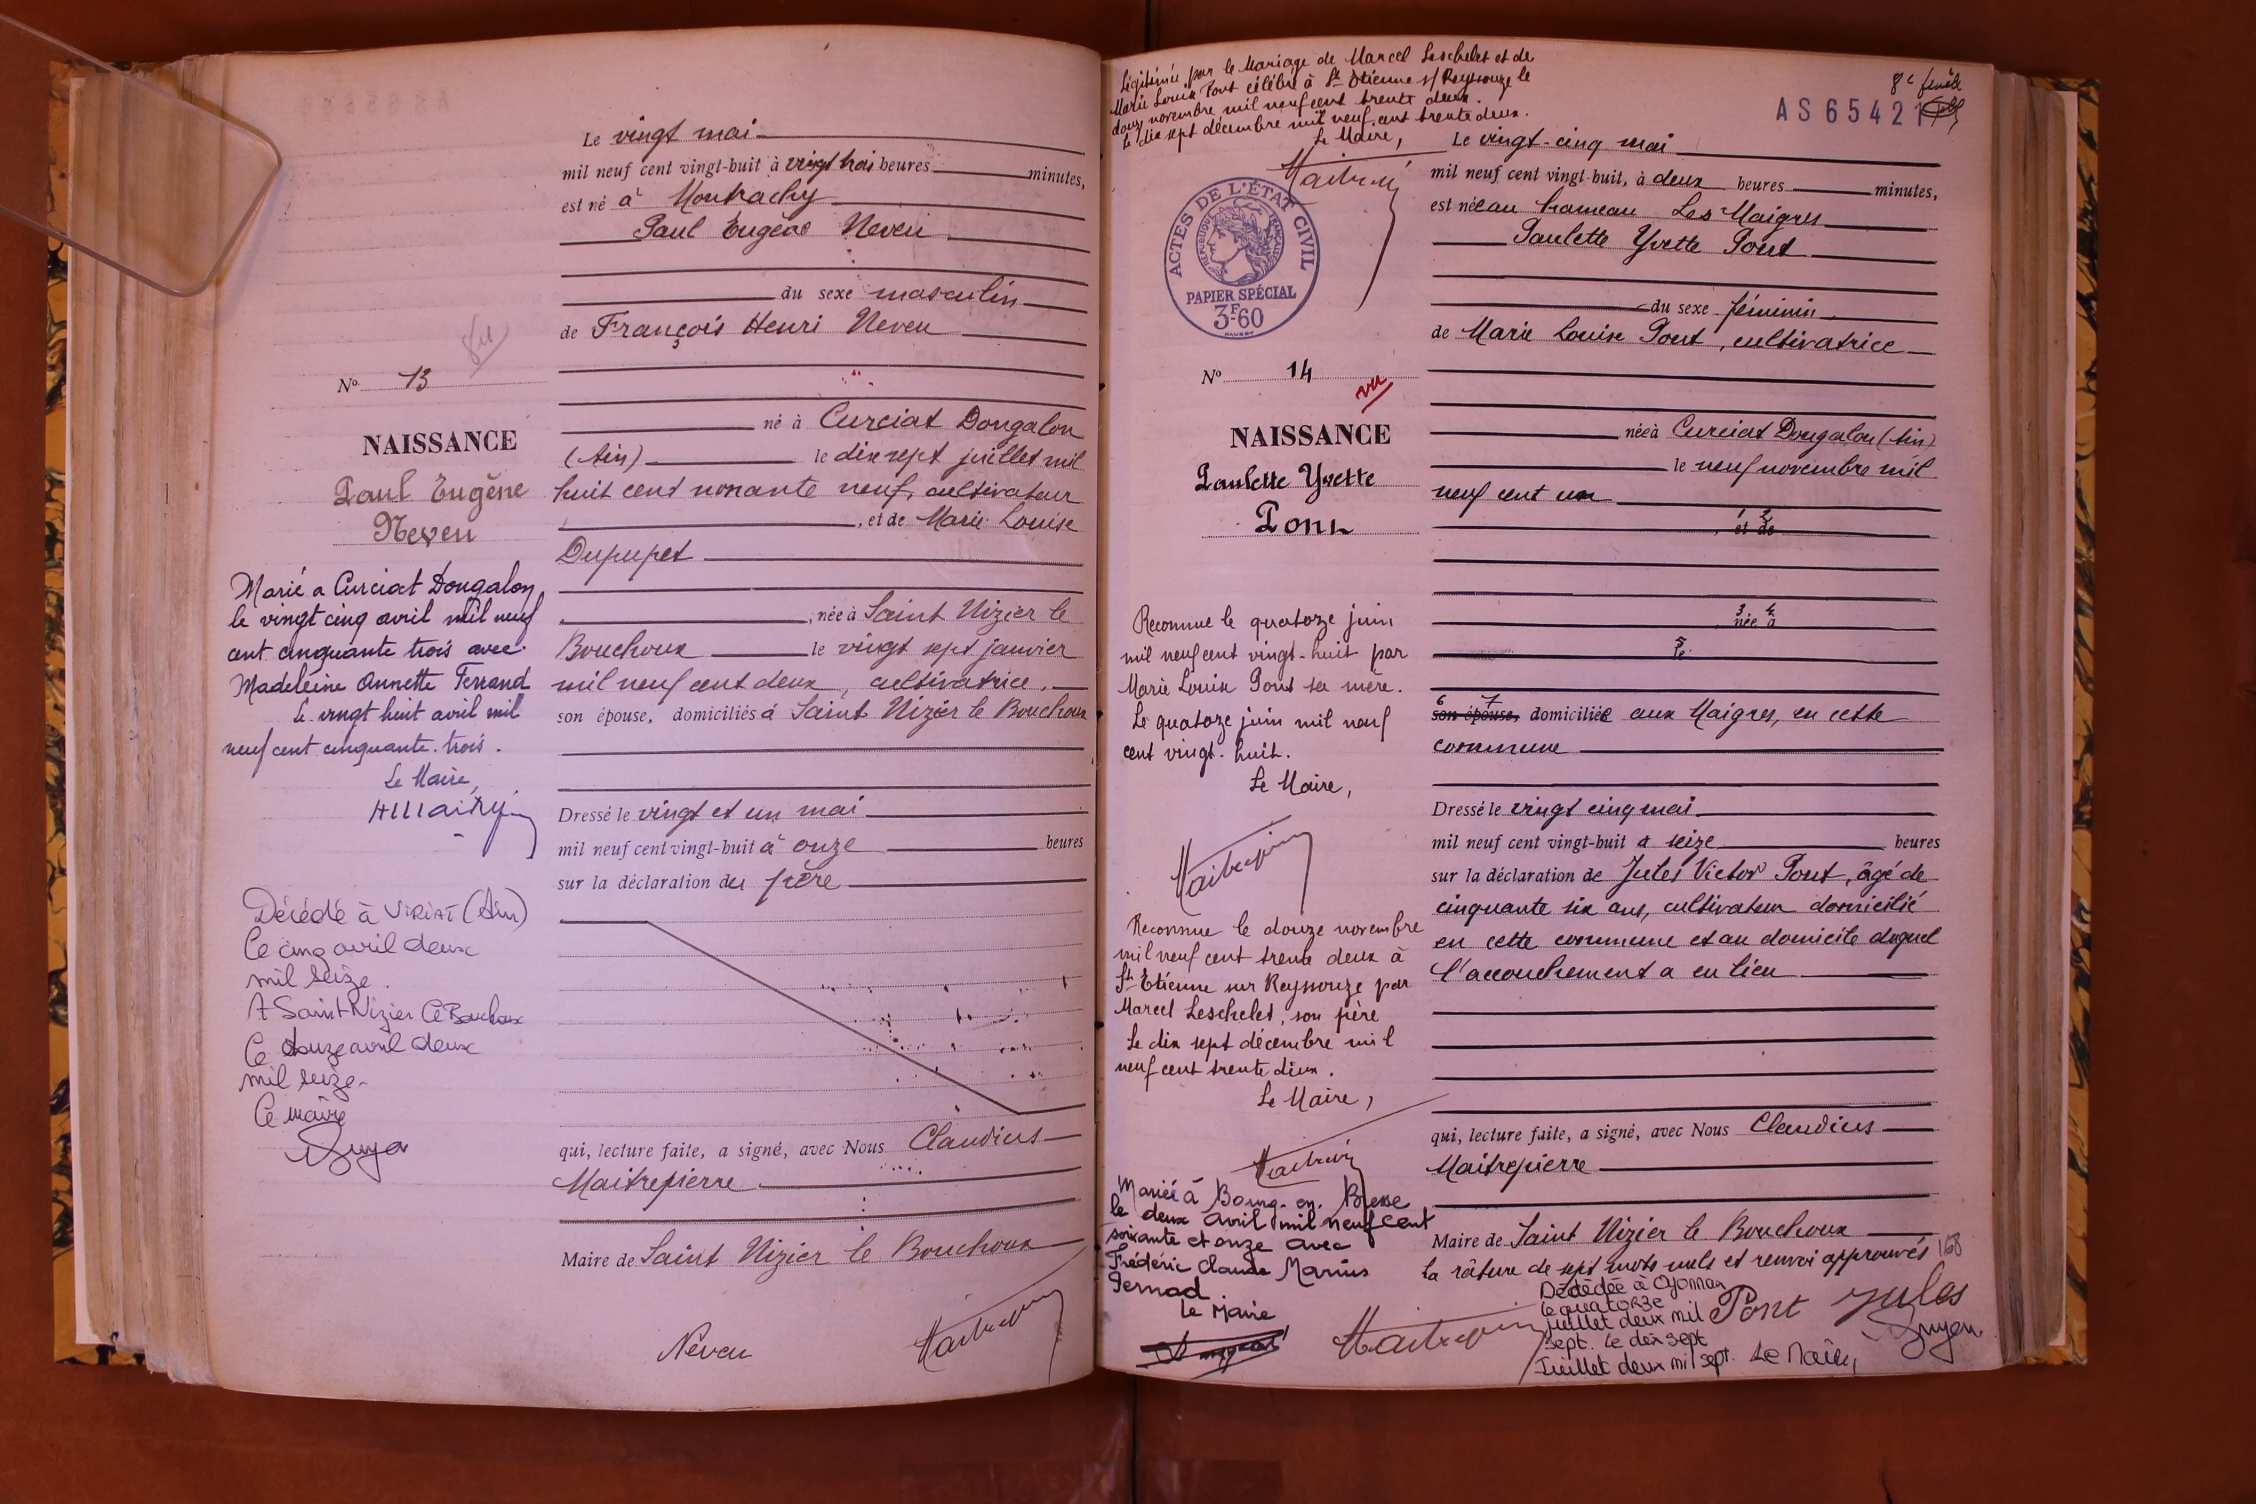 Le vingt mai
mil neuf cent vingt-huit à vingt trois heures minutes,
est né à Montrachy
Paul Eugène Neveu
du sexe masculin
de François Henri Neveu
N° 13
né à Curciat Dongalon
NAISSANCE
(Ain) le dix sept juillet mil
Paul Eugène
huit cent nonante neuf, cultivateur
Neveu
, et de Marie Louise
Dupupet
Marié à Curciat Dongalon
le vingt cinq avril mil neuf
cent cinquante trois avec
Madeleine Annette Ferrand
Le vingt huit avril mil
neuf cent cinquante trois.
Le Maire,
, née à Saint Nizier le
Bouchoux le vingt sept janvier
mil neuf cent deux, cultivatrice,
son épouse, domiciliés à Saint Nizier le Bouchoux
Dressé le vingt et un mai
mil neuf cent vingt-huit à onze heures
sur la déclaration du père
Décédé à VIRIAT (Ain)
le cinq avril deux
mil seize.
A Saint Nizier le Bouchoux
le douze avril deux
mil seize
Le maire
qui, lecture faite, a signé, avec Nous Claudius
Maitrepierre
Maire de Saint Nizier le Bouchoux
Neveu
Légitimée par le Mariage de Marcel Leschelet et de
Marie Louise Pont célébré à St Etienne s/ Reyssouze le
douze novembre mil neuf cent trente deux.
Le dix sept décembre mil neuf cent trente deux.
Le Maire,
AS 65421
Le vingt-cinq mai
mil neuf cent vingt-huit, à deux heures minutes,
est née au hameau Les Maigres
Paulette Yvette Pont
ACTES DE L'ÉTAT CIVIL
RÉPUBLIQUE FRANÇAISE
PAPIER SPÉCIAL
3F-60
du sexe féminin
de Marie Louise Pont, cultivatrice
N° 14
vu
NAISSANCE
née à Curciat Dongalon (Ain)
Paulette Yvette
le neuf novembre mil
neuf cent un
Pont
1 2
et de
3 4
née à
5
le
Reconnue le quatorze juin
mil neuf cent vingt-huit par
Marie Louise Pont sa mère.
Le quatorze juin mil neuf
cent vingt-huit.
Le Maire,
6 7
son épouse, domiciliée aux Maigres, en cette
commune
Dressé le vingt cinq mai
mil neuf cent vingt-huit à seize heures
sur la déclaration de Jules Victor Pont, âgé de
cinquante six ans, cultivateur domicilié
en cette commune et au domicile duquel
l'accouchement a eu lieu
Reconnue le douze novembre
mil neuf cent trente deux à
St Etienne sur Reyssouze par
Marcel Leschelet, son père
Le dix sept décembre mil
neuf cent trente deux.
Le Maire,
qui, lecture faite, a signé, avec Nous Claudius
Maitrepierre
Maire de Saint Nizier le Bouchoux
la râture de sept mots nuls et renvoi approuvés
168
Mariée à Bourg-en-Bresse
le deux avril mil neuf cent
soixante et onze avec
Frédéric Claude Marius
Le Maire
Décédée à Oyonnax
le quatorze
juillet deux mil
sept. Le dix sept
Juillet deux mil sept. Le Maire,
Pont Jules